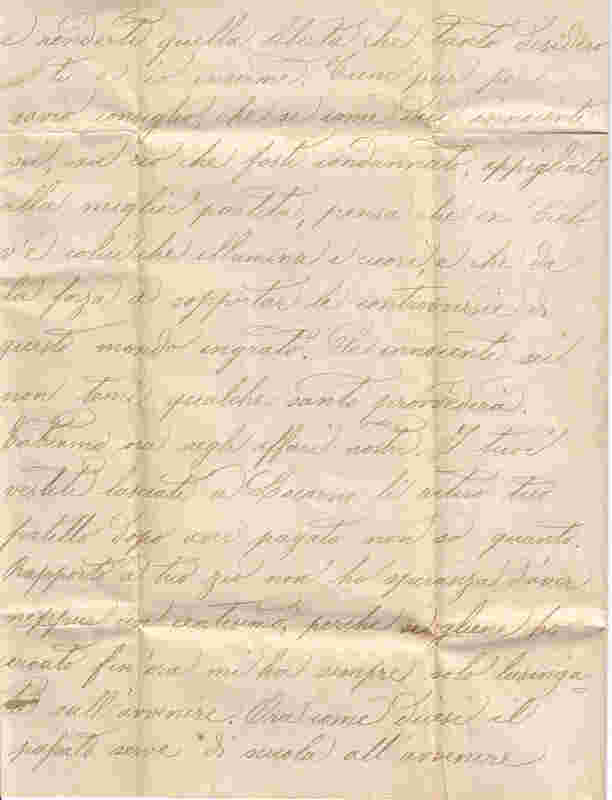 e renderti quella libertà che tanto desidero
ti e io insieme. Tieni pur per
savio consiglio, che se come dici innocente
sei, sei ciò che fosti condannato, appigliati
alla miglior partita, pensa che in Ciel
v'è colui che illumina i cuori, e che da
la forza a sopportar le controversie di
questo mondo ingrato. Se innocente sei
non temi qualche santo provvederà.
Veniamo ora negli affari nostri. I tuoi
vestiti lasciati a Locarno li ritirò tuo
fratello dopo aver pagato non so quanto.
Rapporto a tuo zio non ho speranza d'aver
neppur un centesimo, perché ho
fin'ora mi ha sempre solo lusinga=
to sull'avvenire. Ora come dicesi il
passato serve di scuola all'avvenire